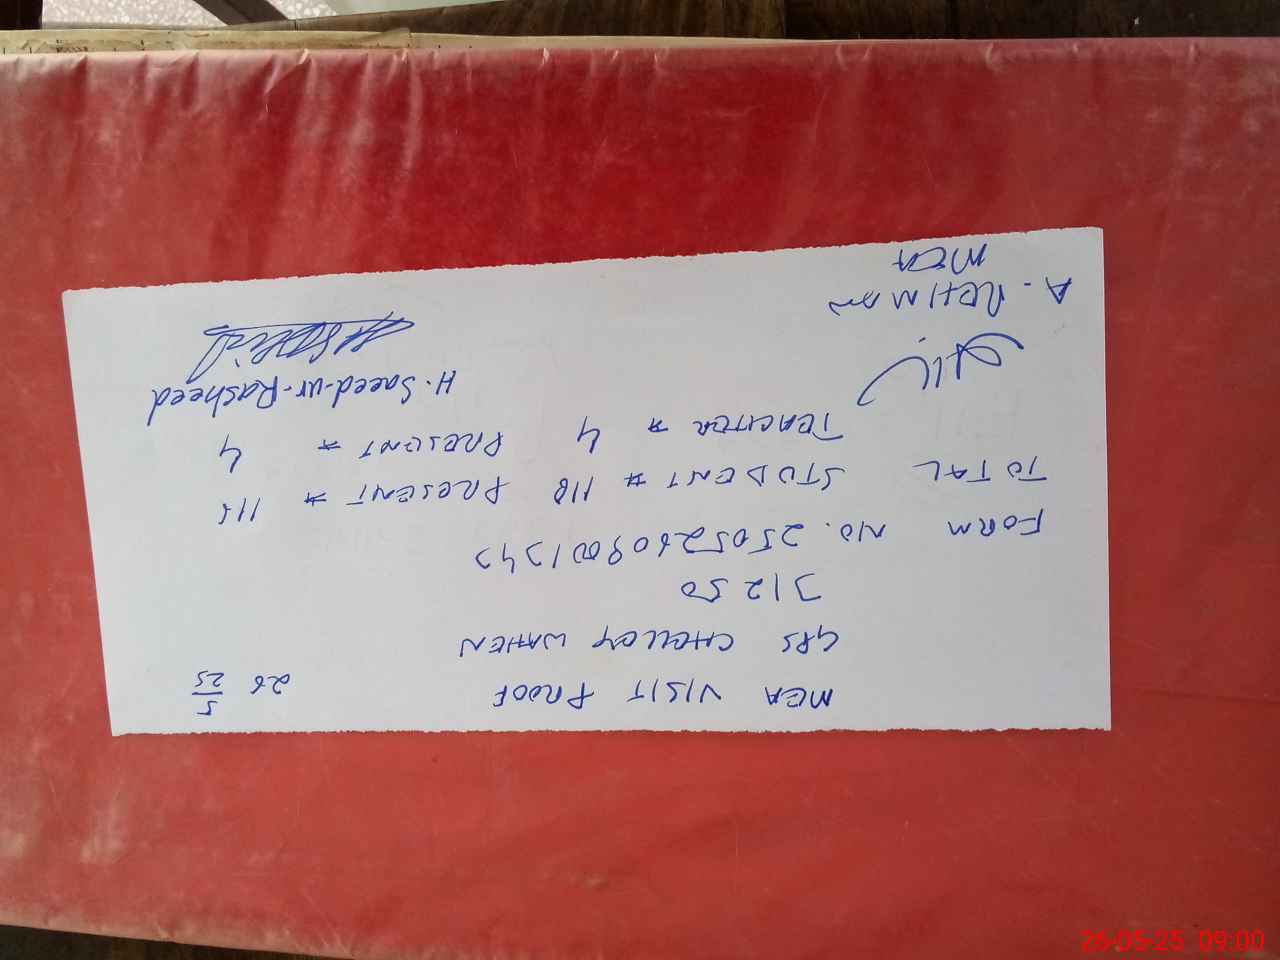 MCA VISIT PROOF 26 5/25
GPS CHELLOY WAHEN
31250
FORM NO. 25052609001343
TOTAL STUDENT # 118 PRESENT # 115
TEACHER # 4 PRESENT # 4
H. Saeed-ur-Rasheed
A. REHMAN
MCA
26-05-25 09:00